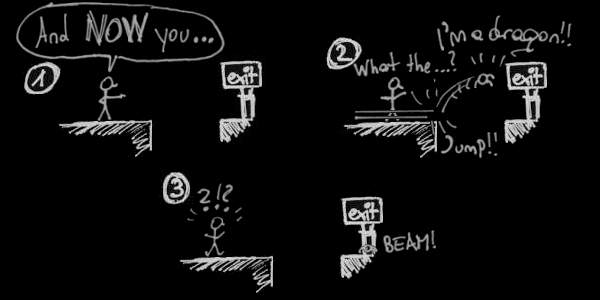 And NOW you...
1
exit
2
What the...?
I'm a dragon!!
exit
Jump!!
3
?!?
exit
BEAM!